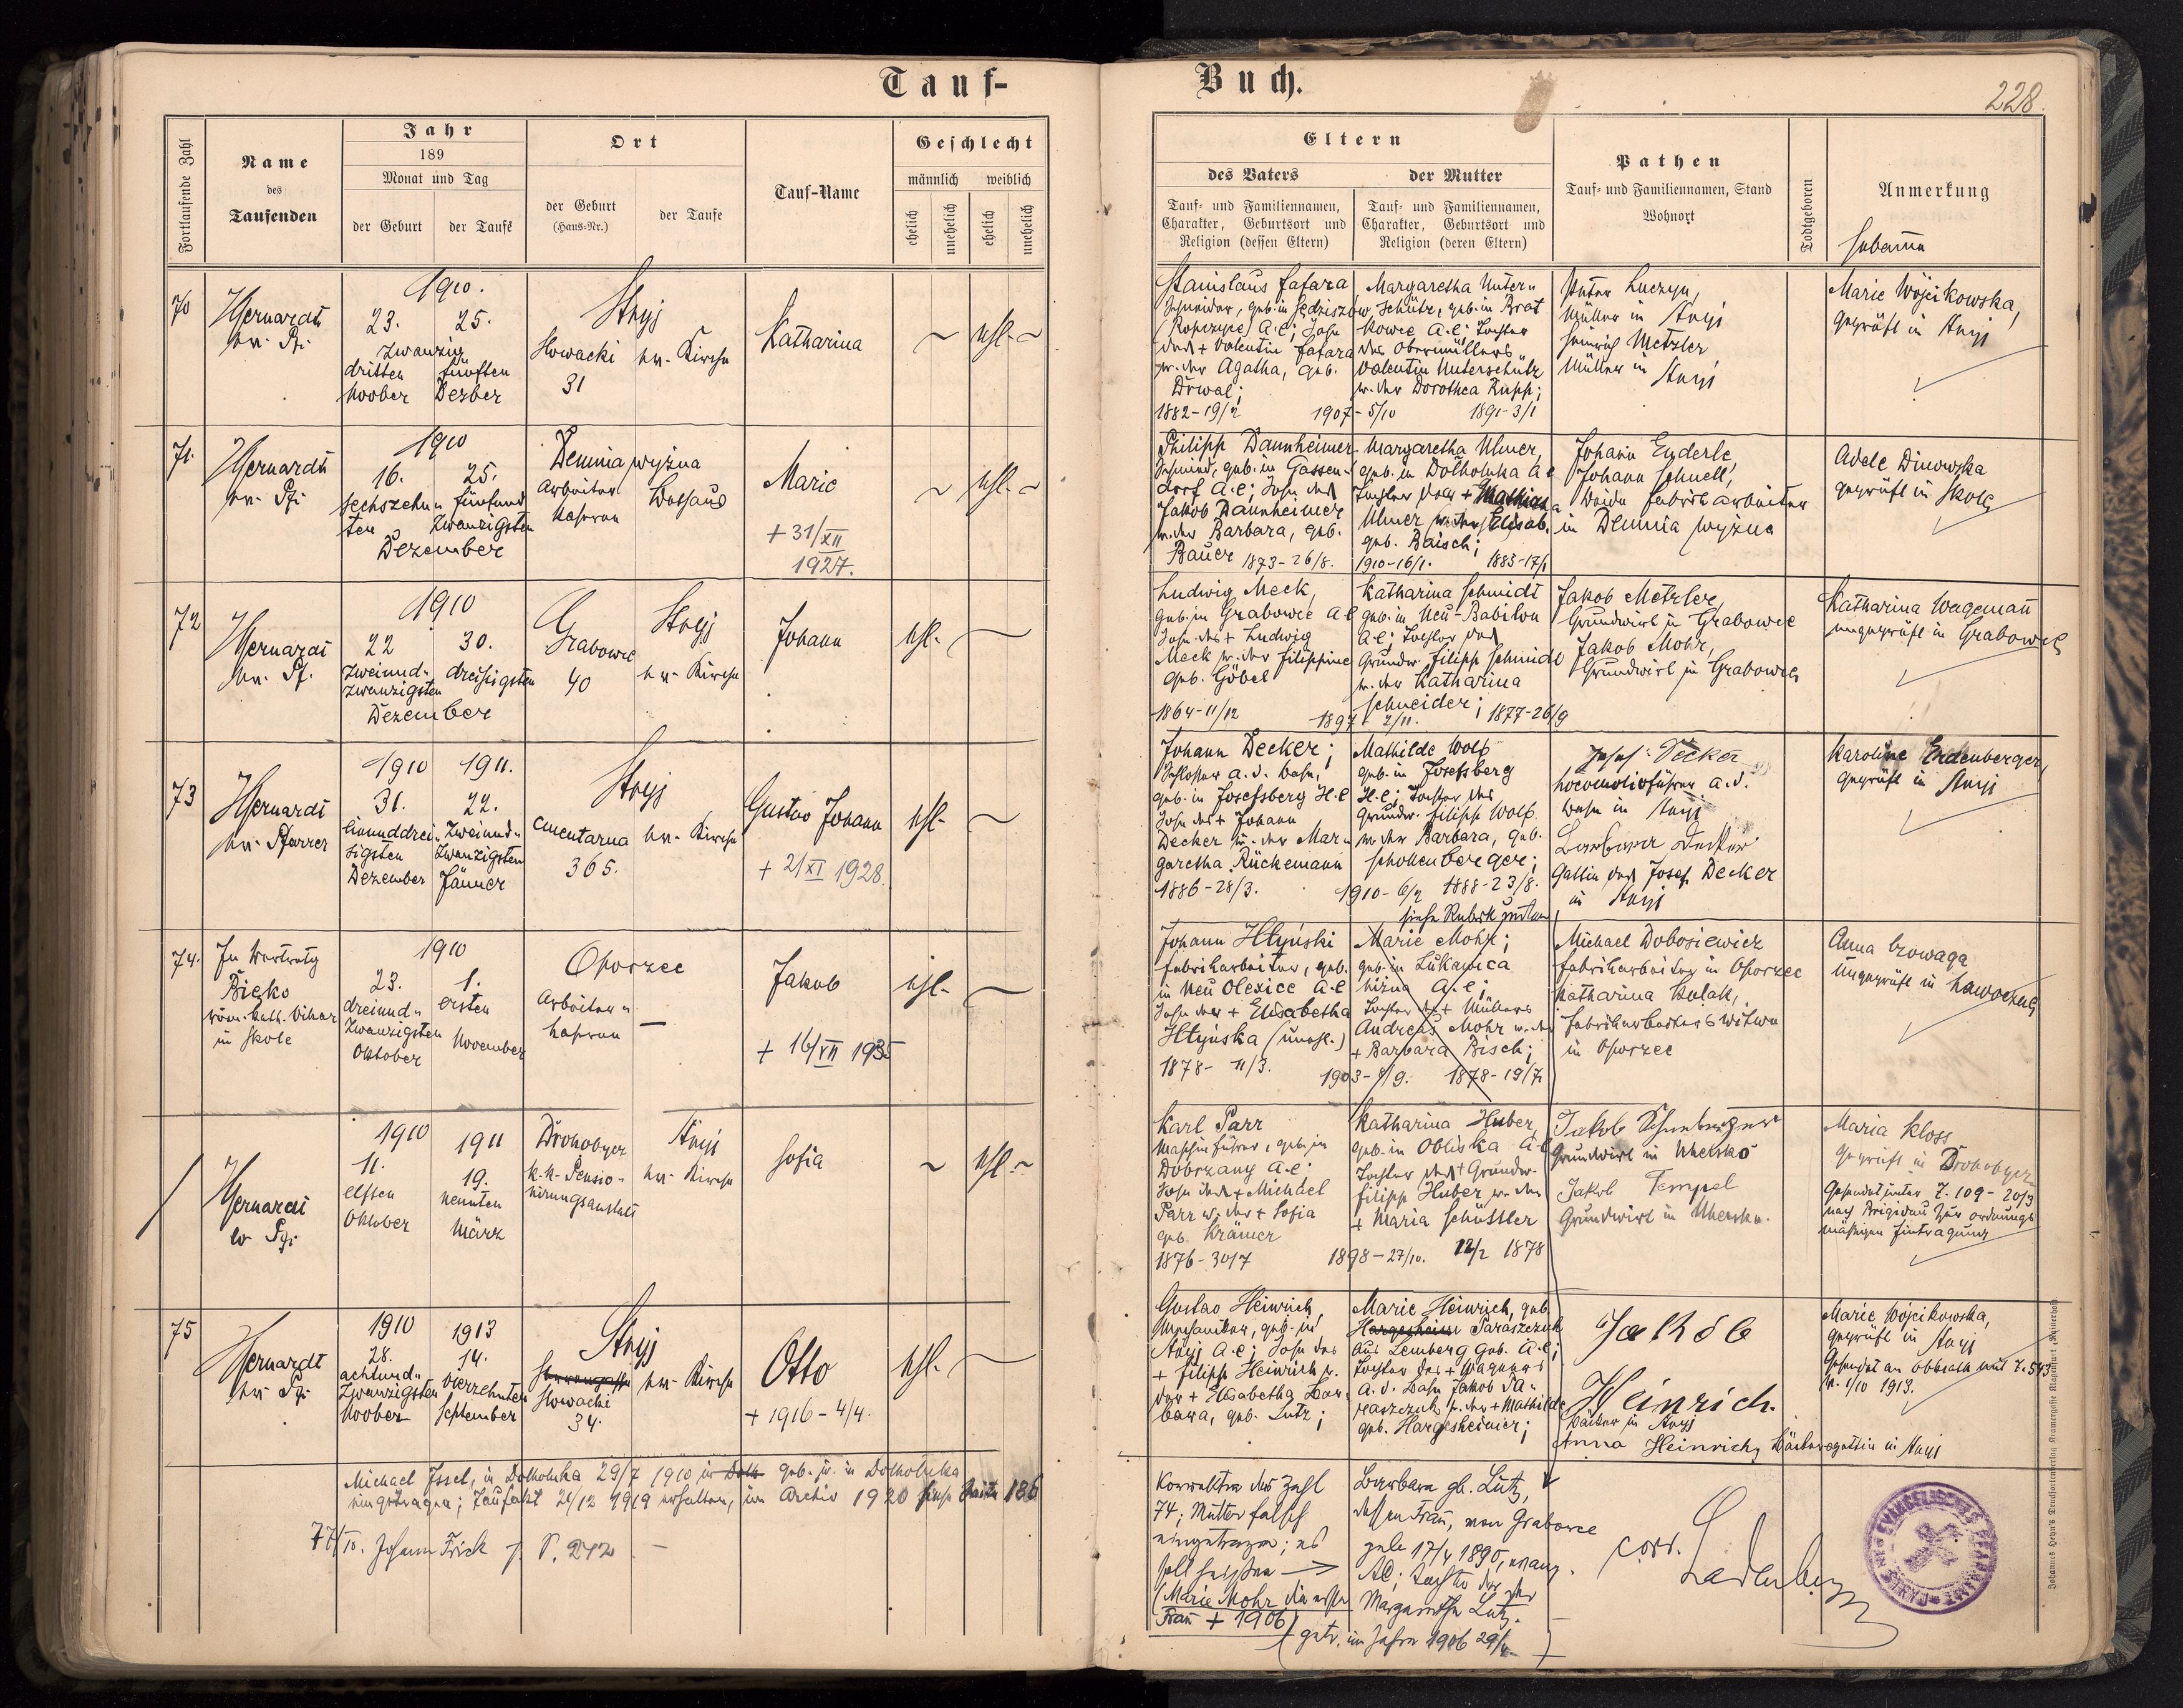 Tauf-
Fortlaufende Zahl
Name
des
Taufenden
Jahr
189
Monat und Tag
der Geburt
der Taufe
Ort
der Geburt
(Haus-Nr.)
der Taufe
Tauf-Name
Geschlecht
männlich weiblich
ehelich
unehelich
ehelich
unehelich
70
1910.
23. 25.
Zwanzig
dritten fünften
Novber Dezber
Stryj
Slowacki ev. Kirche
31
Katharina
ehl.
71.
1910
16. 25.
sechszehn fünfund
ten Zwanzigsten
Dezember
Demnia wyżna
Arbeiter Bethaus
Kasernen
Marie
+ 31/XII
1927.
ehl.
72
1910
22 30.
Zweiund- dreissigsten
zwanzigsten
Dezember
Grabowce Stryj
40 ev. Kirche
Johann
ehl.
73
ev. Pfarrer
1910 1911.
31. 22.
Einunddrei Zweiund
sigsten Zwanzigsten
Dezember Jänner
Stryj
Cmentarna ev. Kirche
365.
Gustav Johann
+ 21/XI 1928.
ehl.
74.
In Vertretung
Biezko
röm.-kath. Vikar
in Skole
1910
23. 1.
dreiund ersten
Zwanzigsten
Oktober November
Oporzec
Arbeiter
Kasernen
Jakob
+ 16/VII 1935
ehl.
1910 1911
11. 19.
elften neunten
Oktober März
Drohobycz Stryj
k.k. Pensio- ev. Kirche
nirungsanstalt
Sofia
ehl.
75
1910 1913
28. 14.
achtund vierzehnten
Zwanzigsten
Novber September
Stryj
ev. Kirche
Slowacki
34.
Otto
+ 1916 - 4/4.
ehl.
Michael Issel, in Dolholuka 29/7 1910 geb. in Dolholuka
eingetragen; Taufakt 21/12 1919 erhalten, im Archiv 1920 siehe Seite 186
Johann Frick S. 242
Buch.
228.
Eltern
des Vaters
Tauf- und Familiennamen,
Charakter, Geburtsort und
Religion (dessen Eltern)
der Mutter
Tauf- und Familiennamen,
Charakter, Geburtsort und
Religion (deren Eltern)
Pathen
Tauf- und Familiennamen, Stand
Wohnort
Todtgeboren
Anmerkung
Hebamme
Stanislaus Fafara
Schneider, geb. in Sędziszów
(Ropczyce) A.C; Sohn
des + Valentin Fafara
u. der Agatha, geb.
Drwal;
1882-19/2 1907-5/10
Margaretha Unter-
schütz, geb. in Brat
kowce A.C; Tochter
des Obermüllers
Valentin Unterschütz
u. der Dorothea Rupp;
1891-3/1
Peter Luczyn,
Müller in Stryj
Heinrich Metzler
Müller in Stryj
Marie Wojcikowska,
geprüft in Stryj
Philipp Dannheimer
Schmied, geb. in Gassen-
dorf A.C; Sohn des
Jakob Dannheimer
u. der Barbara, geb.
Bauer 1873-26/8.
Margaretha Ulmer,
geb. in Dolholuka A.C
Tochter des + Mathias
Ulmer u. der Elisab.
geb. Baisch;
1910-16/1. 1885-17/1
Johann Enderle,
Johann Schnell,
Beide Fabrikarbeiter
in Demnia wyżna
Adele Dinowska
geprüft in Skole
Ludwig Meck,
geb. in Grabowce A.C
Sohn des + Ludwig
Meck u. der Filippine
geb. Göbel
1864-11/12 1897-2/11.
Katharina Schmidt
geb. in Neu-Babilon
A.C; Tochter des
Grundw. Filipp Schmidt
u. der Katharina
Schneider; 1877-26/9
Jakob Metzler,
Grundwirt in Grabowce
Jakob Mohr,
Grundwirt in Grabowce
Katharina Wagemann
ungeprüft in Grabowce
Johann Decker;
Schlosser a. d. Bahn,
geb. in Josefsberg H.C
Sohn des + Johann
Decker u. der Mar-
garetha Rückemann
1886-28/3. 1910-6/2
Mathilde Wolf
geb. in Josefsberg
H.C; Tochter des
Grundw. Filipp Wolf
u. der Barbara, geb.
Schollenberger;
1888-23/8.
siehe Rubrik unten
Josef Decker
Locomotivführer a. d.
Bahn in Stryj
Barbara Decker
Gattin des Josef Decker
in Stryj
Karoline Endenberger,
geprüft in Stryj
Johann Hłyński
Fabrikarbeiter, geb.
in Neu Olexice A.C
Sohn der + Elisabetha
Hłyńska (unehl.)
1878- 11/3. 1903-8/9.
Marie Mohr;
geb. in Łukawica
niżna A.C;
Tochter des + Müllers
Andreas Mohr u. der
+ Barbara Bisch;
1878-19/7
Michael Dobosiewicz
Fabrikarbeiter in Oporzec
Katharina Kulak,
Fabrikarbeiters Witwe
in Oporzec
Anna Growaga
Ungeprüft in Ławoczne
Karl Parr
Maschinführer, geb. in
Dobrzany A.C;
Sohn des + Michael
Parr u. der + Sofia
geb. Krämer
1876-30/7 1898-27/10.
Katharina Huber,
geb. in Obliska A.C
Tochter des + Grundw.
Filipp Huber u. der
+ Maria Schüssler
12/2 1878
Grundwirt in Uhersko
Jakob Tempel
Grundwirt in Uhersko.
Maria Kloss
geprüft in Drohobycz
Gesendet unter Z. 109 - 20/3
nach Brigidau zur ordnungs
mässigen Eintragung
Gustav Heinrich,
Mechaniker, geb. in
Stryj A.C; Sohn des
+ Filipp Heinrich u.
der + Elisabetha Bar-
bara, geb. Lutz;
Marie Heinrich, geb.
Hargesheimer Paraszczuk
aus Lemberg geb. A.C;
Tochter des + Wagners
a. d. Bahn Jakob Pa-
raszczuk u. der + Mathilde
geb. Hargesheimer;
Jakob
Heinrich.
Bäcker in Stryj
Anna Heinrich, Bäckersgattin in Stryj
Marie Wojcikowska,
geprüft in Stryj
Z. 543
v. 1/10 1913.
Korrektur der Zahl
74; Mutter falsch
eingetragen; es
soll heißen →
(Marie Mohr die erste
Frau + 1906)
Barbara gb. Lutz,
dessen Frau, von Grabowce
gebr 17/4 1890, evang.
AC; Tochter der
Margaretha Lutz.
(getr. im Jahre 1906 29/4
corr.
Ladenberger
EVANGELISCHES PFARRAMT
Johannes Heyn's Drucksortenverlag Kramergasse Klagenfurt